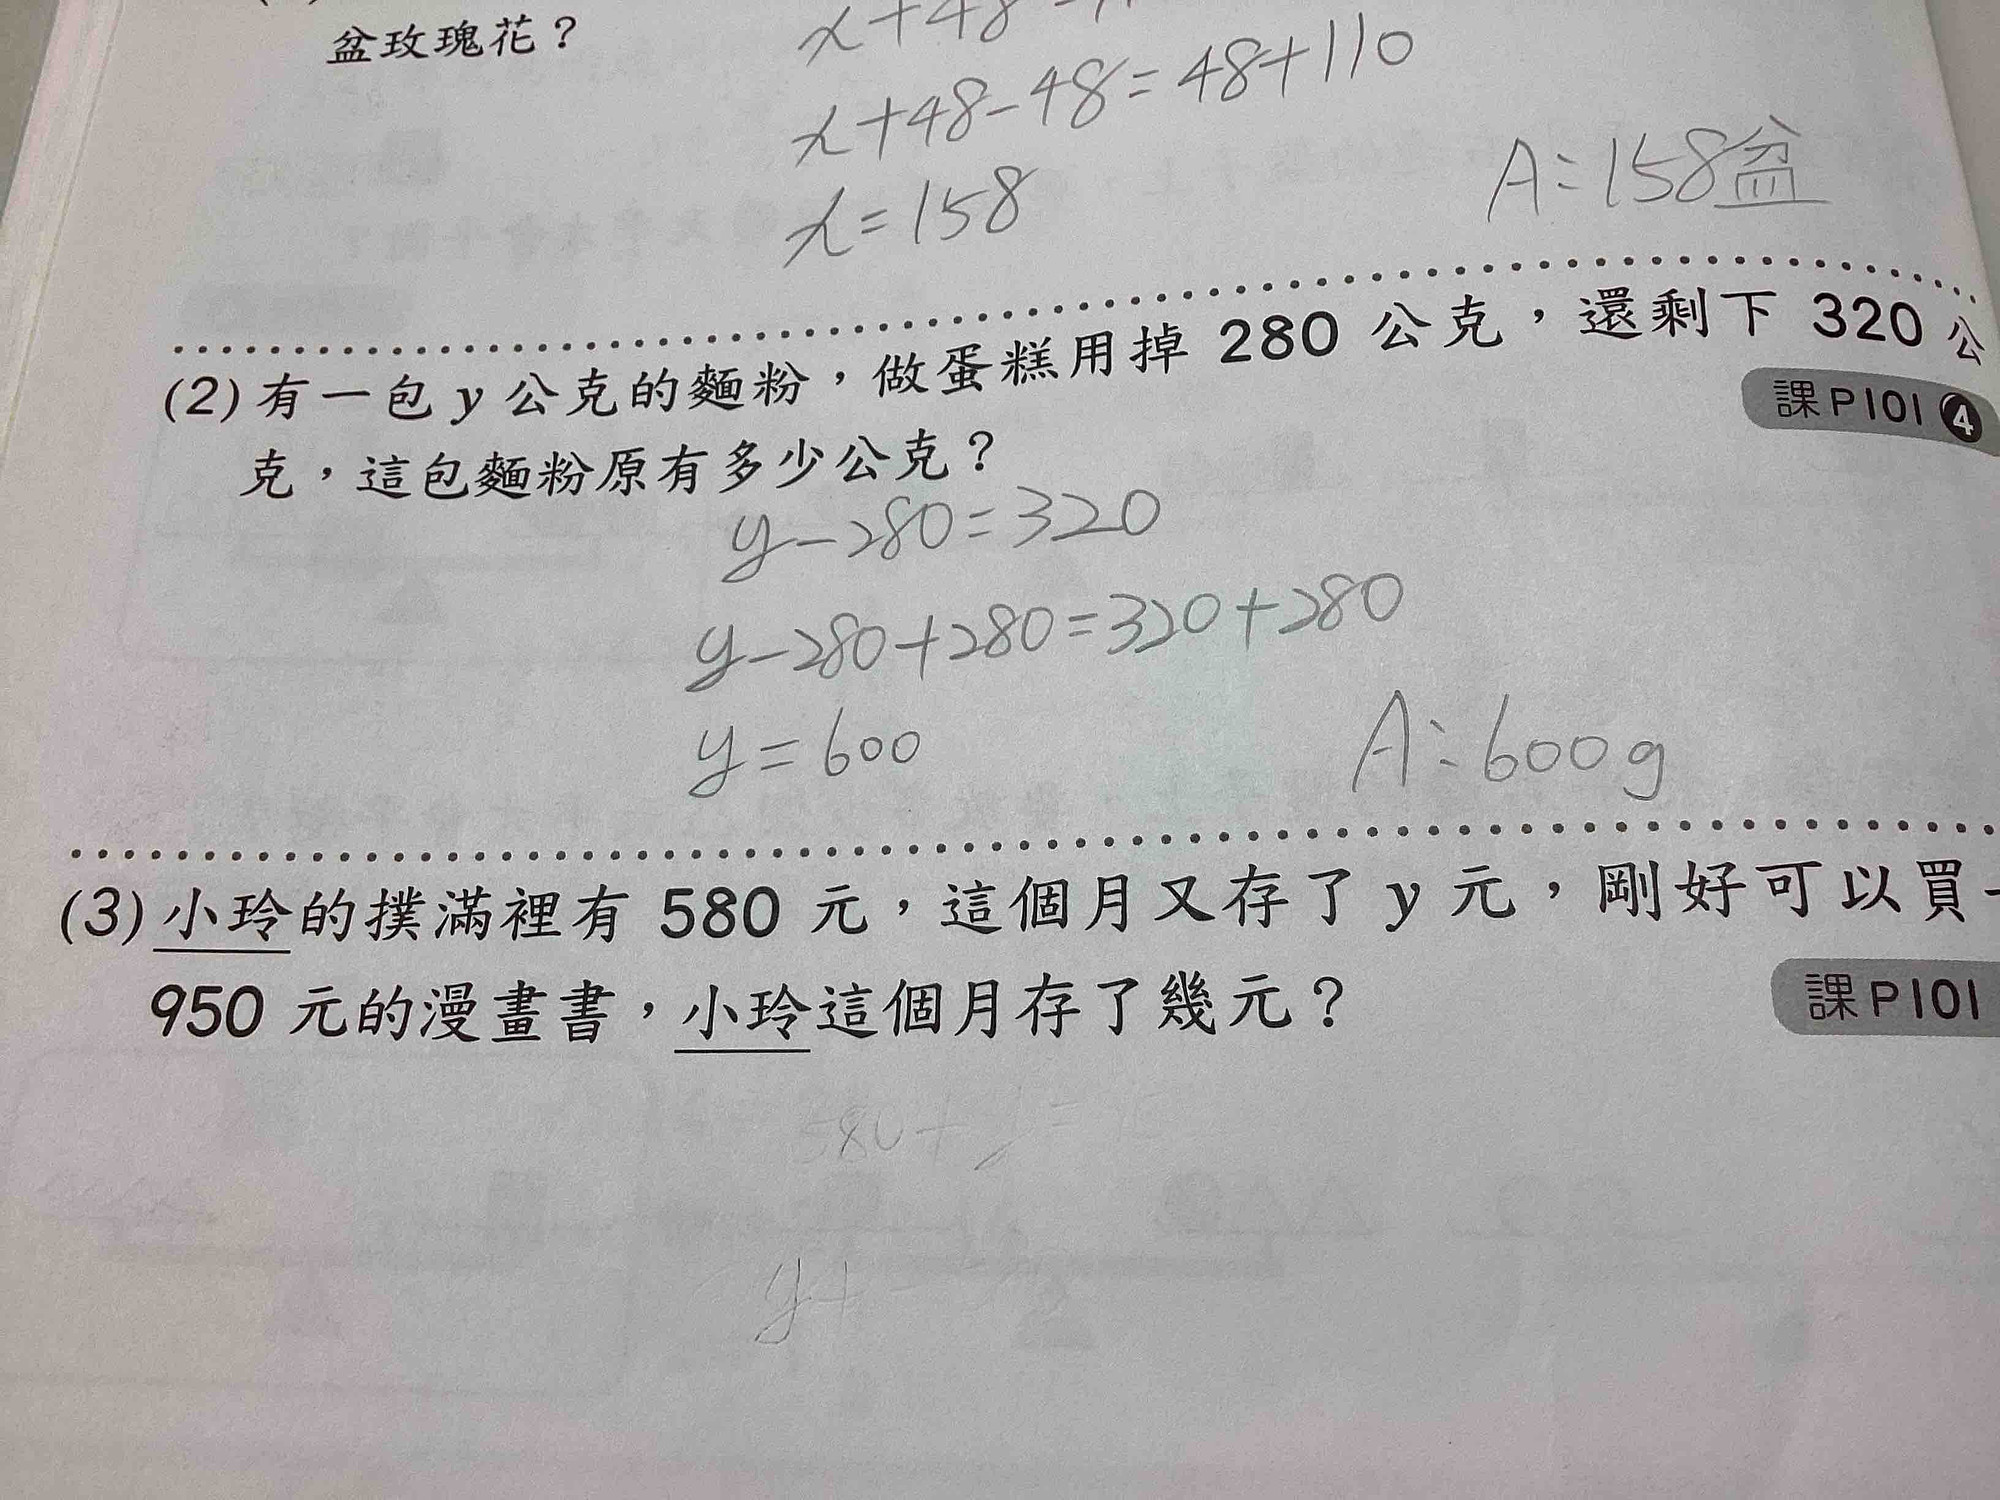 盆玫瑰花？
x+48
x+48-48=48+110
x=158
A:158盆
(2) 有一包 y 公克的麵粉，做蛋糕用掉 280 公克，還剩下 320 公
課P101 4
克，這包麵粉原有多少公克？
y-280=320
y-280+280=320+280
y=600
A:600g
(3) 小玲的撲滿裡有 580 元，這個月又存了 y 元，剛好可以買
950 元的漫畫書，小玲這個月存了幾元？
課P101
580+y=
y+